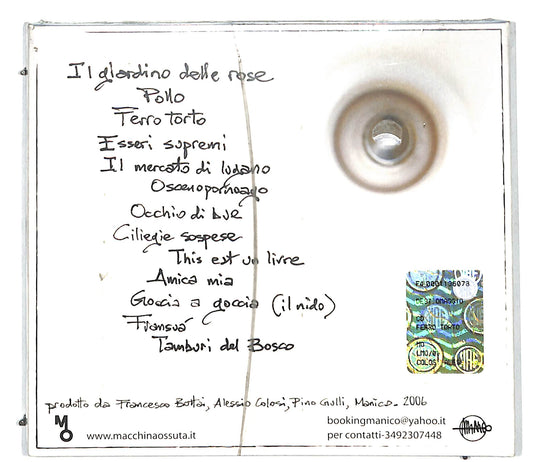 Il giardino delle rose
Pollo
Ferro torto
Esseri supremi
Il mercato di lugano
Oscenopornoago
Occhio di bue
Ciliegie sospese
This est un livre
Amica mia
Goccia a goccia (il nido)
Fransuá
Tamburi del Bosco
prodotto da Francesco Bottai, Alessio Colosi, Pino Gulli, Manico. 2006
MO
www.macchinaossuta.it
bookingmanico@yahoo.it
per contatti-3492307448
CD
FERRO TORTO